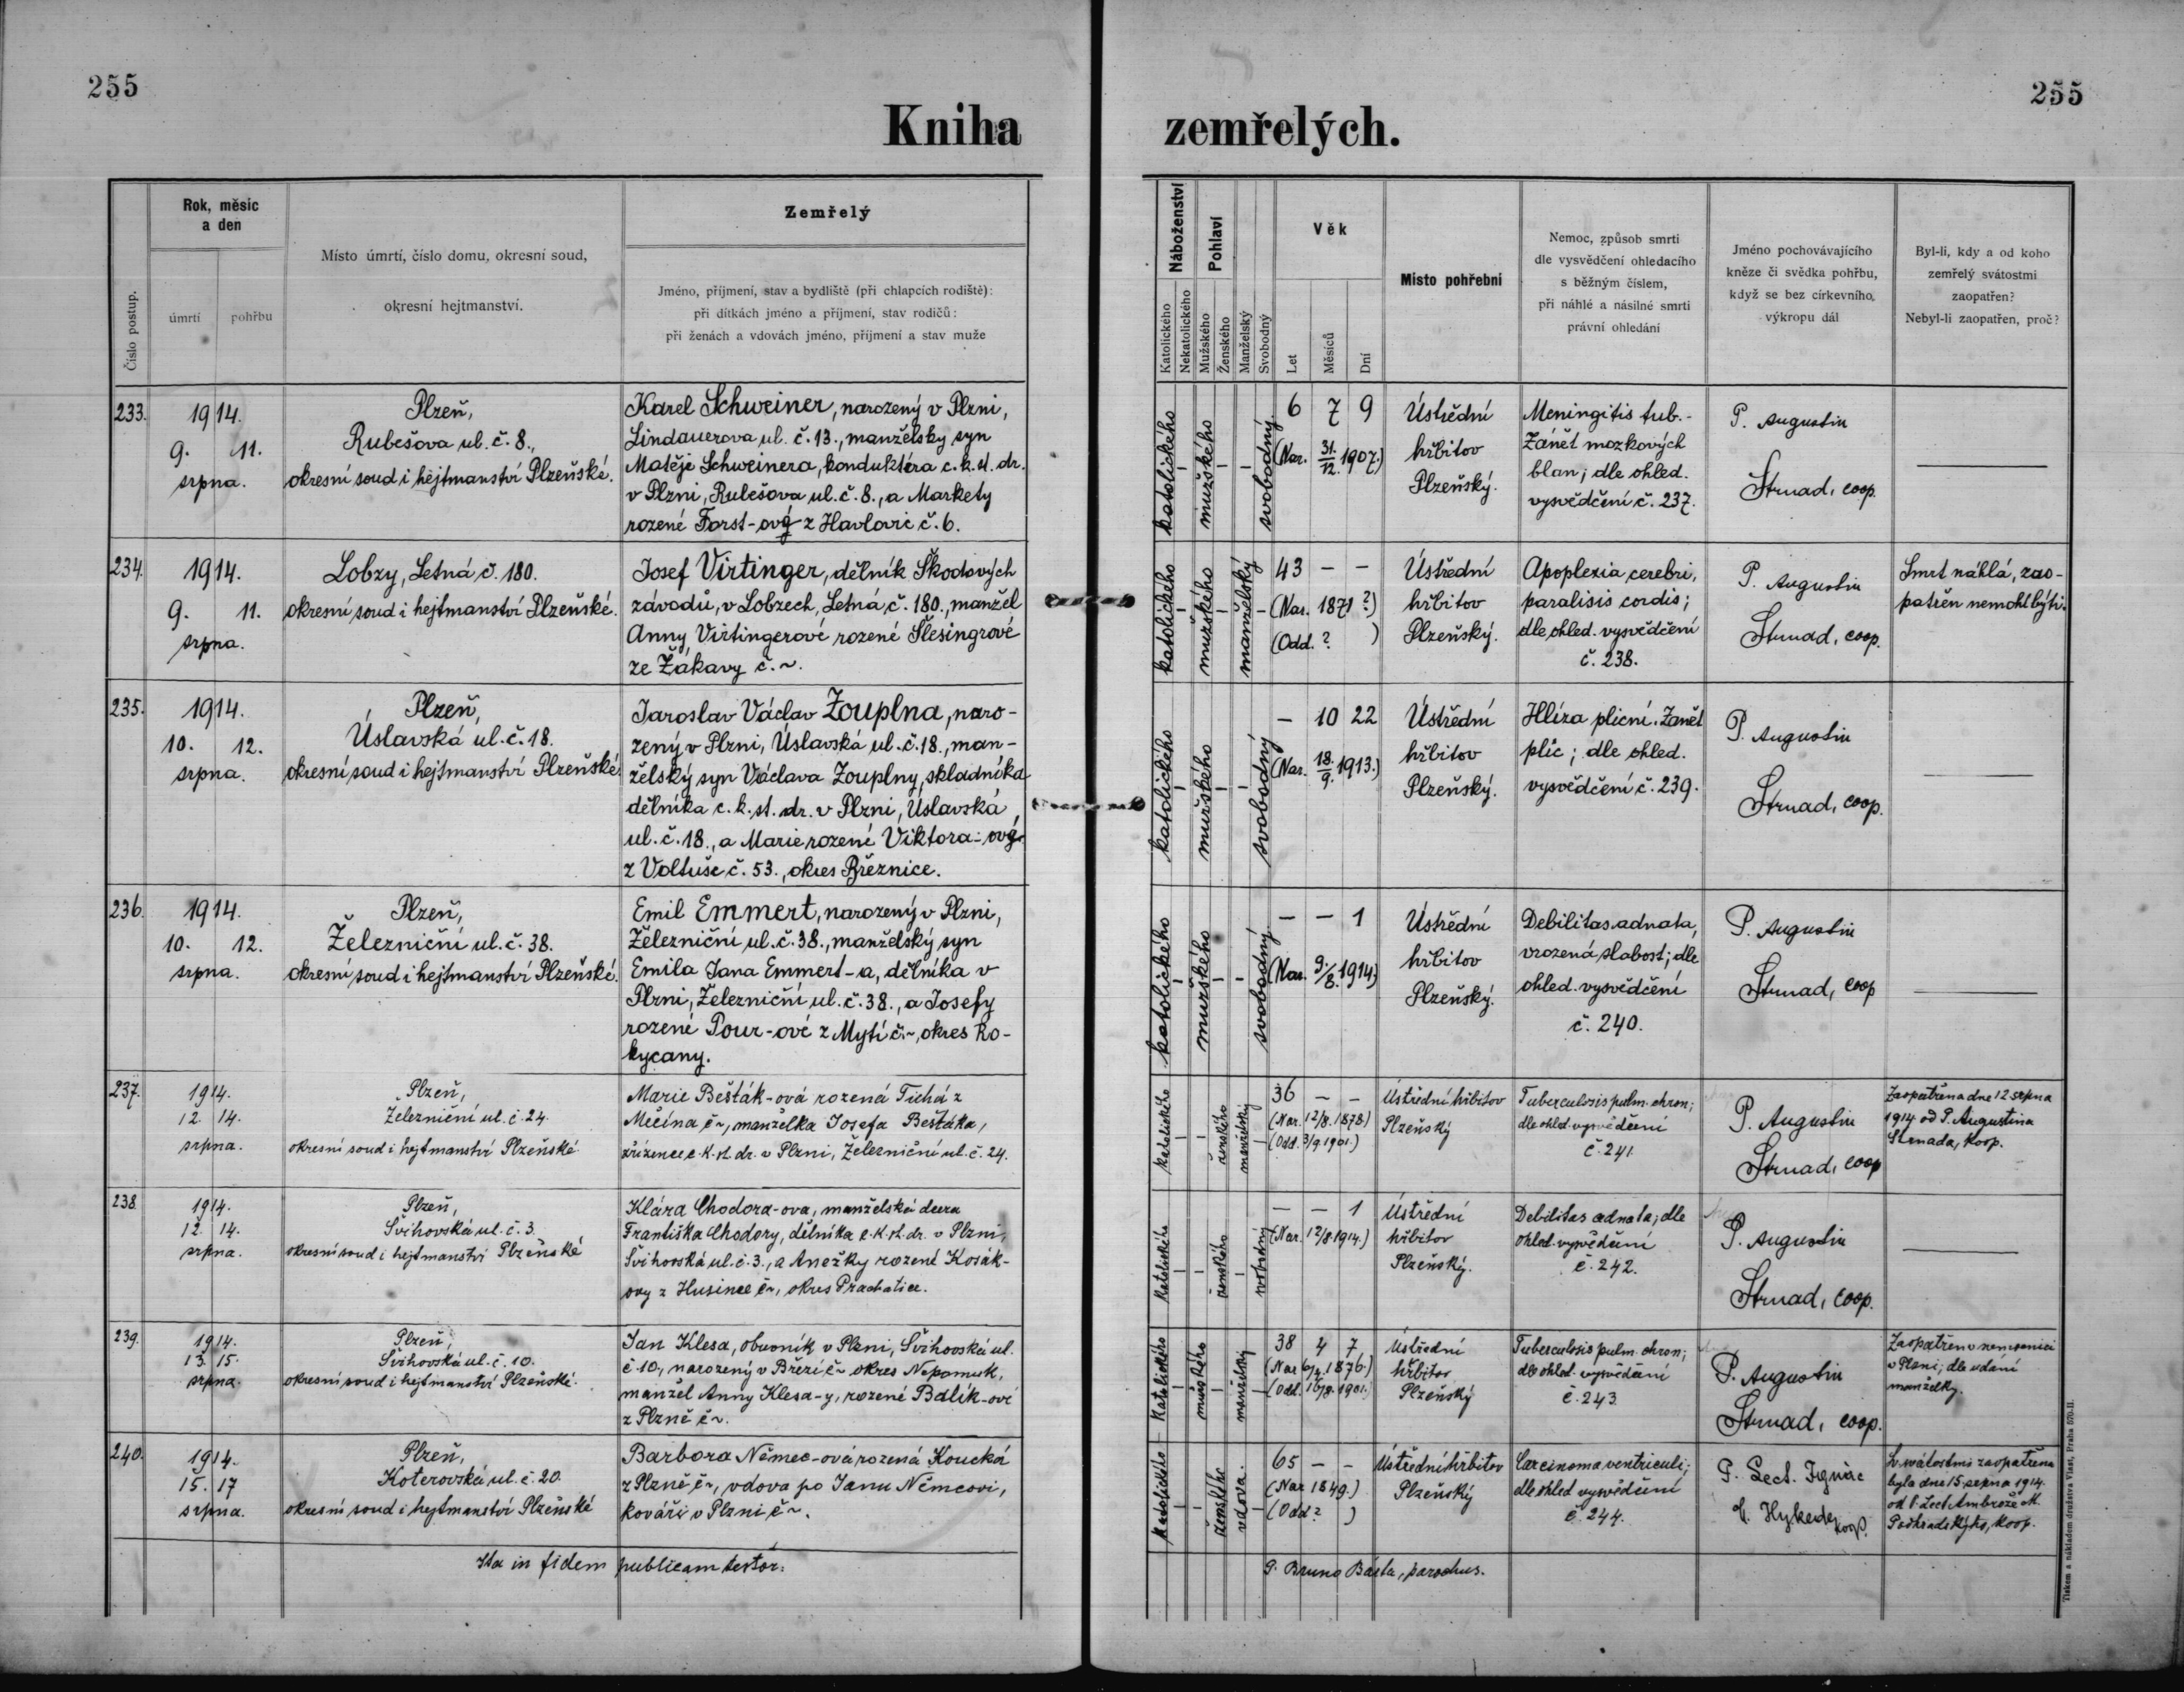 255
255
Kniha zemřelých.
Číslo postup.
Rok, měsíc
a den
úmrtí
pohřbu
Místo úmrtí, číslo domu, okresní soud,
okresní hejtmanství.
Zemřelý
Jméno, příjmení, stav a bydliště (při chlapcích rodiště):
při dítkách jméno a příjmení, stav rodičů:
při ženách a vdovách jméno, příjmení a stav muže
Náboženství
Katolického
Nekatolického
Pohlaví
Mužského
Ženského
Manželský
Svobodný
Věk
Let
Měsíců
Dní
Místo pohřební
Nemoc, způsob smrti
dle vysvědčení ohledacího
s běžným číslem,
při náhlé a násilné smrti
právní ohledání
Jméno pochovávajícího
kněze či svědka pohřbu,
když se bez církevního
výkropu dál
Byl-li, kdy a od koho
zemřelý svátostmi
zaopatřen?
Nebyl-li zaopatřen, proč?
233.
1914.
9. 11.
srpna.
Plzeň,
Rubešova ul. č. 8.,
okresní soud i hejtmanství Plzeňské.
Karel Schweiner, narozený v Plzni,
Lindauerova ul. č. 13., manželský syn
Matěje Schweinera, konduktéra c. k. st. dr.
v Plzni, Rubešova ul. č. 8., a Markety
rozené Forst-ové z Havlovic č. 6.
katolického
mužského
svobodný
6 7 9
(Nar. 31./12. 1907.)
Ústřední
hřbitov
Plzeňský.
Meningitis tub.-
Zánět mozkových
blan; dle ohled.
vysvědčení č. 237.
P. Augustin
Strnad, coop.
234.
1914.
9. 11.
srpna.
Lobzy, Letná č. 180.
okresní soud i hejtmanství Plzeňské.
Josef Virtinger, dělník Škodových
závodů, v Lobzech, Letná č. 180., manžel
Anny Virtingerové rozené Šlesingrové
ze Žákavy č. ~.
katolického
mužského
manželský
43 - -
(Nar. 1871?)
(Odd. ? )
Ústřední
hřbitov
Plzeňský.
Apoplexia cerebri,
paralisis cordis;
dle ohled. vysvědčení
č. 238.
P. Augustin
Strnad, coop.
Smrt náhlá, zao-
patřen nemohl býti.
235.
1914.
10. 12.
srpna.
Plzeň,
Úslavská ul. č. 18.
okresní soud i hejtmanství Plzeňské.
Jaroslav Václav Zouplna, naro-
zený v Plzni, Úslavská ul. č. 18., man-
želský syn Václava Zouplny, skladníka
dělníka c. k. st. dr. v Plzni, Úslavská
ul. č. 18., a Marie rozené Viktora-ové
z Voltuše č. 53., okres Březnice.
katolického
mužského
svobodný
- 10 22
(Nar. 18./9. 1913.)
Ústřední
hřbitov
Plzeňský.
Hlíza plicní. Zánět
plic; dle ohled.
vysvědčení č. 239.
P. Augustin
Strnad, coop.
236.
1914.
10. 12.
srpna.
Plzeň,
Železniční ul. č. 38.
okresní soud i hejtmanství Plzeňské.
Emil Emmert, narozený v Plzni,
Železniční ul. č. 38., manželský syn
Emila Jana Emmert-a, dělníka v
Plzni, Železniční ul. č. 38., a Josefy
rozené Pour-ové z Mytí č. ~, okres Ro-
kycany.
katolického
mužského
svobodný
- - 1
(Nar. 9./8. 1914)
Ústřední
hřbitov
Plzeňský.
Debilitas adnata,
vrozená slabost; dle
ohled. vysvědčení
č. 240.
P. Augustin
Strnad, coop
237.
1914.
12. 14.
srpna.
Plzeň,
Železniční ul. č. 24.
okresní soud i hejtmanství Plzeňské.
Marie Bešták-ová rozená Tichá z
Měčína č ~, manželka Josefa Beštáka,
zřízence c. k. st. dr. v Plzni, Železniční ul. č. 24.
katolického
ženského
manželský
36 - -
(Nar. 12/8. 1878)
(Odd. 3/9 1901.)
Ústřední hřbitov
Plzeňský
Tuberculosis pulm. chron;
dle ohled. vysvědčení
č. 241
P. Augustin
Strnad, coop
Zaopatřena dne 12 srpna
1914 od P. Augustina
Strnada, koop.
238.
1914.
12. 14.
srpna.
Plzeň,
Švihovská ul. č. 3.
okresní soud i hejtmanství Plzeňské
Klára Chodora-ova, manželská dcera
Františka Chodory, dělníka c. k. st. dr. v Plzni,
Švihovská ul. č. 3., a Anežky rozené Kosák-
ovy z Husince č ~, okres Prachatice.
katolického
ženského
svobodný
- - 1
(Nar. 12/8. 1914.)
Ústřední
hřbitov
Plzeňský.
Debilitas adnata; dle
ohled. vysvědčení
č. 242.
P. Augustin
Strnad, coop.
239.
1914.
13. 15.
srpna.
Plzeň,
Švihovská ul. č. 10.
okresní soud i hejtmanství Plzeňské.
Jan Klesa, obuvník v Plzni, Švihovská ul.
č 10, narozený v Březí č ~ okres Nepomuk,
manžel Anny Klesa-y, rozené Bdlík-ové
z Plzně č ~.
Katolického
mužského
manželský
38 4 7
(Nar. 6/4. 1876.)
(Odd. 1901.)
Ústřední
hřbitov
Plzeňský
Tuberculosis pulm. chron;
dle ohled. vysvědčení
č. 243.
P. Augustin
Strnad, coop.
Zaopatřen v nemocnici
v Plzni; dle udání
manželky.
240.
1914.
15. 17
srpna.
Plzeň,
Koterovská ul. č. 20.
okresní soud i hejtmanství Plzeňské
Barbora Němec-ová rozená Koucká
z Plzně č ~, vdova po Janu Němcovi,
kováři v Plzni č ~.
Katolického
ženského
vdova.
65 - -
(Nar 1849.)
(Odd? )
Ústřední hřbitov
Plzeňský
Carcinoma ventriculi;
dle ohled vysvědčení
č. 244.
P. Lect. Ignác
Hykede koop.
Svátostmi zaopatřena
byla dne 15. srpna 1914.
od P. Lect. Ambrože M.
Podhradského, koop.
Ita in fidem publicam testor:
P. Bruno Bárta, parochus.
Tiskem a nákladem družstva Vlast, Praha 570-II.